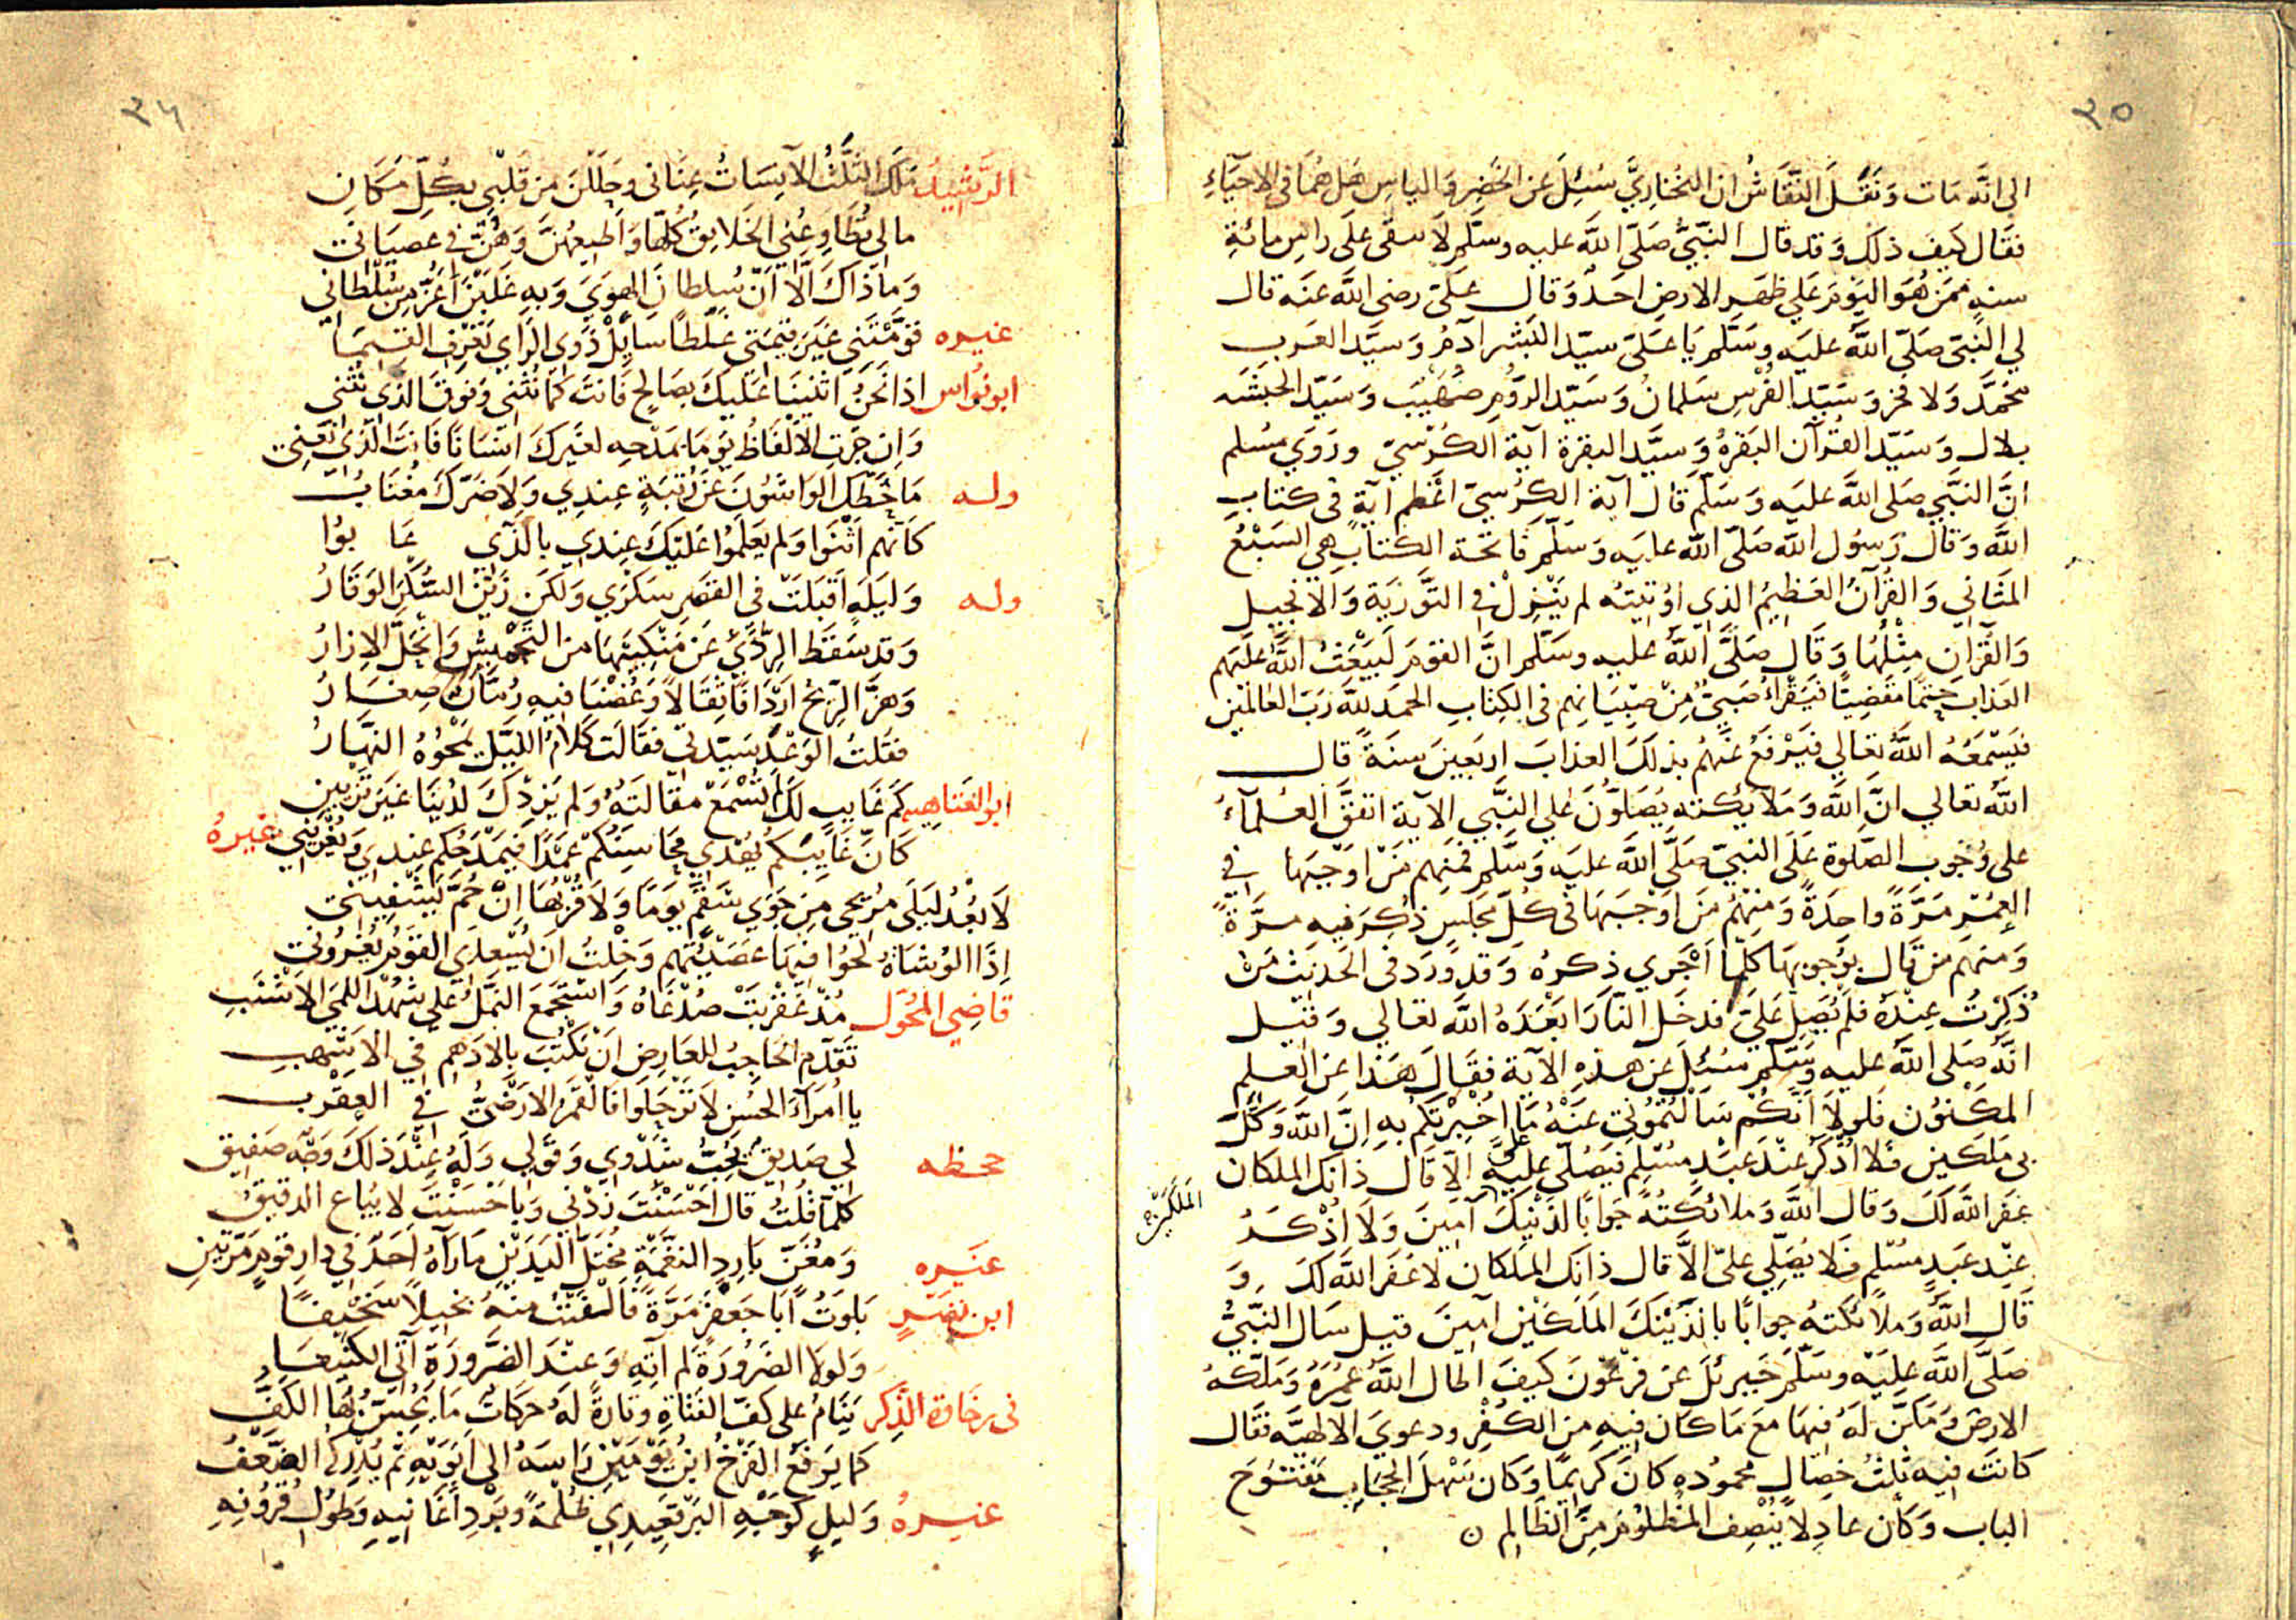 ٣٥
الى انه مات ونقل النقاش ان البخاري سئل عن الخضر والياس هل هما في الاحياء
فقال كيف ذلك وقد قال النبي صلى الله عليه وسلم لا يبقى على راس مائة
سنه ممن هو اليوم على ظهر الارض احد وقال على رضى الله عنه قال
لي النبي صلى الله عليه وسلم يا على سيد البشر آدم وسيد العرب
محمد ولا فخر وسيد الفرس سلمان وسيد الروم صهيب وسيد الحبشه
بلال وسيد القرآن البقرة وسيد البقرة آية الكرسي وروي مسلم
ان النبي صلى الله عليه وسلم قال آية الكرسي اعظم آية في كتاب
الله وقال رسول الله صلى الله عليه وسلم فاتحة الكتاب هي السبع
المثاني والقرآن العظيم الذي اوتيته لم ينزل في التورية والانجيل
والقران مثلها وقال صلى الله عليه وسلم ان القوم ليبعث الله عليهم
العذاب حتما مقضيا فيقرأ صبي من صبيانهم في الكتاب الحمد لله رب العالمين
فيسمعه الله تعالي فيرفع عنهم بذلك العذاب اربعين سنة قال
الله تعالي ان الله وملائكته يصلون علي النبي الاية اتفق العلمآء
على وجوب الصلوة على النبي صلى الله عليه وسلم فمنهم من اوجبها في
العمر مرة واحدة ومنهم من اوجبها في كل مجلس ذكر فيه مرة
ومنهم من قال بوجوبها كلما اجري ذكره وقد ورد في الحديث من
ذكرت عنده فلم يصل علي فدخل النار ابعده الله تعالي وقيل
انه صلى الله عليه وسلم سئل عن هذه الاية فقال هذا عن العلم
المكنون فلولا انكم سالتموني عنه ما اخبرتكم به ان الله وكل
بي ملكين فلا اذكر عند عبد مسلم فيصلي علي الا قال ذانك الملكان
غفر الله لك وقال الله وملائكته جوابا لذنيك آمين ولا اذكر
الملكين
عند عبد مسلم فلا يصلي علي الا قال ذانك الملكان لا غفر الله لك و
قال الله وملائكته جوابا بالذينك الملكين آمين قيل سال النبي
صلى الله عليه وسلم جبرئل عن فرعون كيف اطال الله عمره وملكه
الارض ومكن له فيها مع ما كان فيه من الكفر ودعوي الالهية فقال
كانت فيه ثلث خصال محموده كان كريما وكان سهل الحجاب مفتوح
الباب وكان عادلا ينصف المظلوم من الظالم ن
٣٦
الرشيد ملك الثلث الآنسات عناني وحللن من قلبي بكل مكان
مالي تطاوعني الخلايق كلها واطيعهن وهن في عصياني
وما ذاك الا ان سلطان الهوي وبه غلبن اعز من سلطاني
غيره قومتني غير قيمتي غلطا سايل ذوي الراي تعرف القيما
ابو نواس اذا نحن اثنينا عليك بصالح فانت كما نثني وفوق الذي نثني
وان جرت الالفاظ يوما بمدحه لغيرك انسانا فانت الذي نعني
وله ما حطك الواشون عن رتبة عندي ولا ضرك مغتاب
كانهم اثنوا ولم يعلموا عليك عندي بالذي عابوا
وله وليلة اقبلت في القصر سكري ولكن زين السكر الوقار
وقد سقط الردي عن منكبيها من التجميش وانحل الازار
وهز الريح اردافا ثقالا وغصنا فيه رمان صغار
فقلت الوعد سيدتي فقالت كلام الليل يمحوه النهار
ابو العتاهيه كم غايب لك لم تسمع مقالته ولم يزدك لدينا غير تزيين
كان غايبكم يهدي محاسنكم عمدا فيمدحكم عندي ويغريني غيره
لا بعد ليلى مريحي من جوي سقم يوما ولا قربها ان حم يشفيني
اذا الوشاة لحوا فيها عصيتهم وخلت ان بسعدي القوم يغروني
قاضي المحول مذ عقربت صدغاه واستجمع النمل على شهد اللمي الاشنب
تقدم الحاجب للعارض ان نكتب بالادهم في الاشهب
يا امرآء الحسن لا ترحلوا فالقمر الارضي في العقرب
جحظه لي صديق يحب شدوي وقولي وله عند ذلك وجه صفيق
كلما قلت قال احسنت زدني وباحسنت لا يباع الدقيق
غيره ومغن بارد النغمة مختل اليدين ما رآه احد في دار قوم مرتين
ابن نصر بلوت ابا جعفر مرة فالفيت منه بخيلا سخيفا
ولولا الضرورة لم آته وعند الضرورة آتي الكنيفا
في رخاوة الذكر ينام على كف الفتاة وتارة له حركات ما يحس بها الكف
كما يرفع الفرخ ابن يومين راسه الى ابويه ثم يدركه الضعف
غيره وليل كوجه البرقعيدي ظلمة وبرد اغانيه وطول قرونه